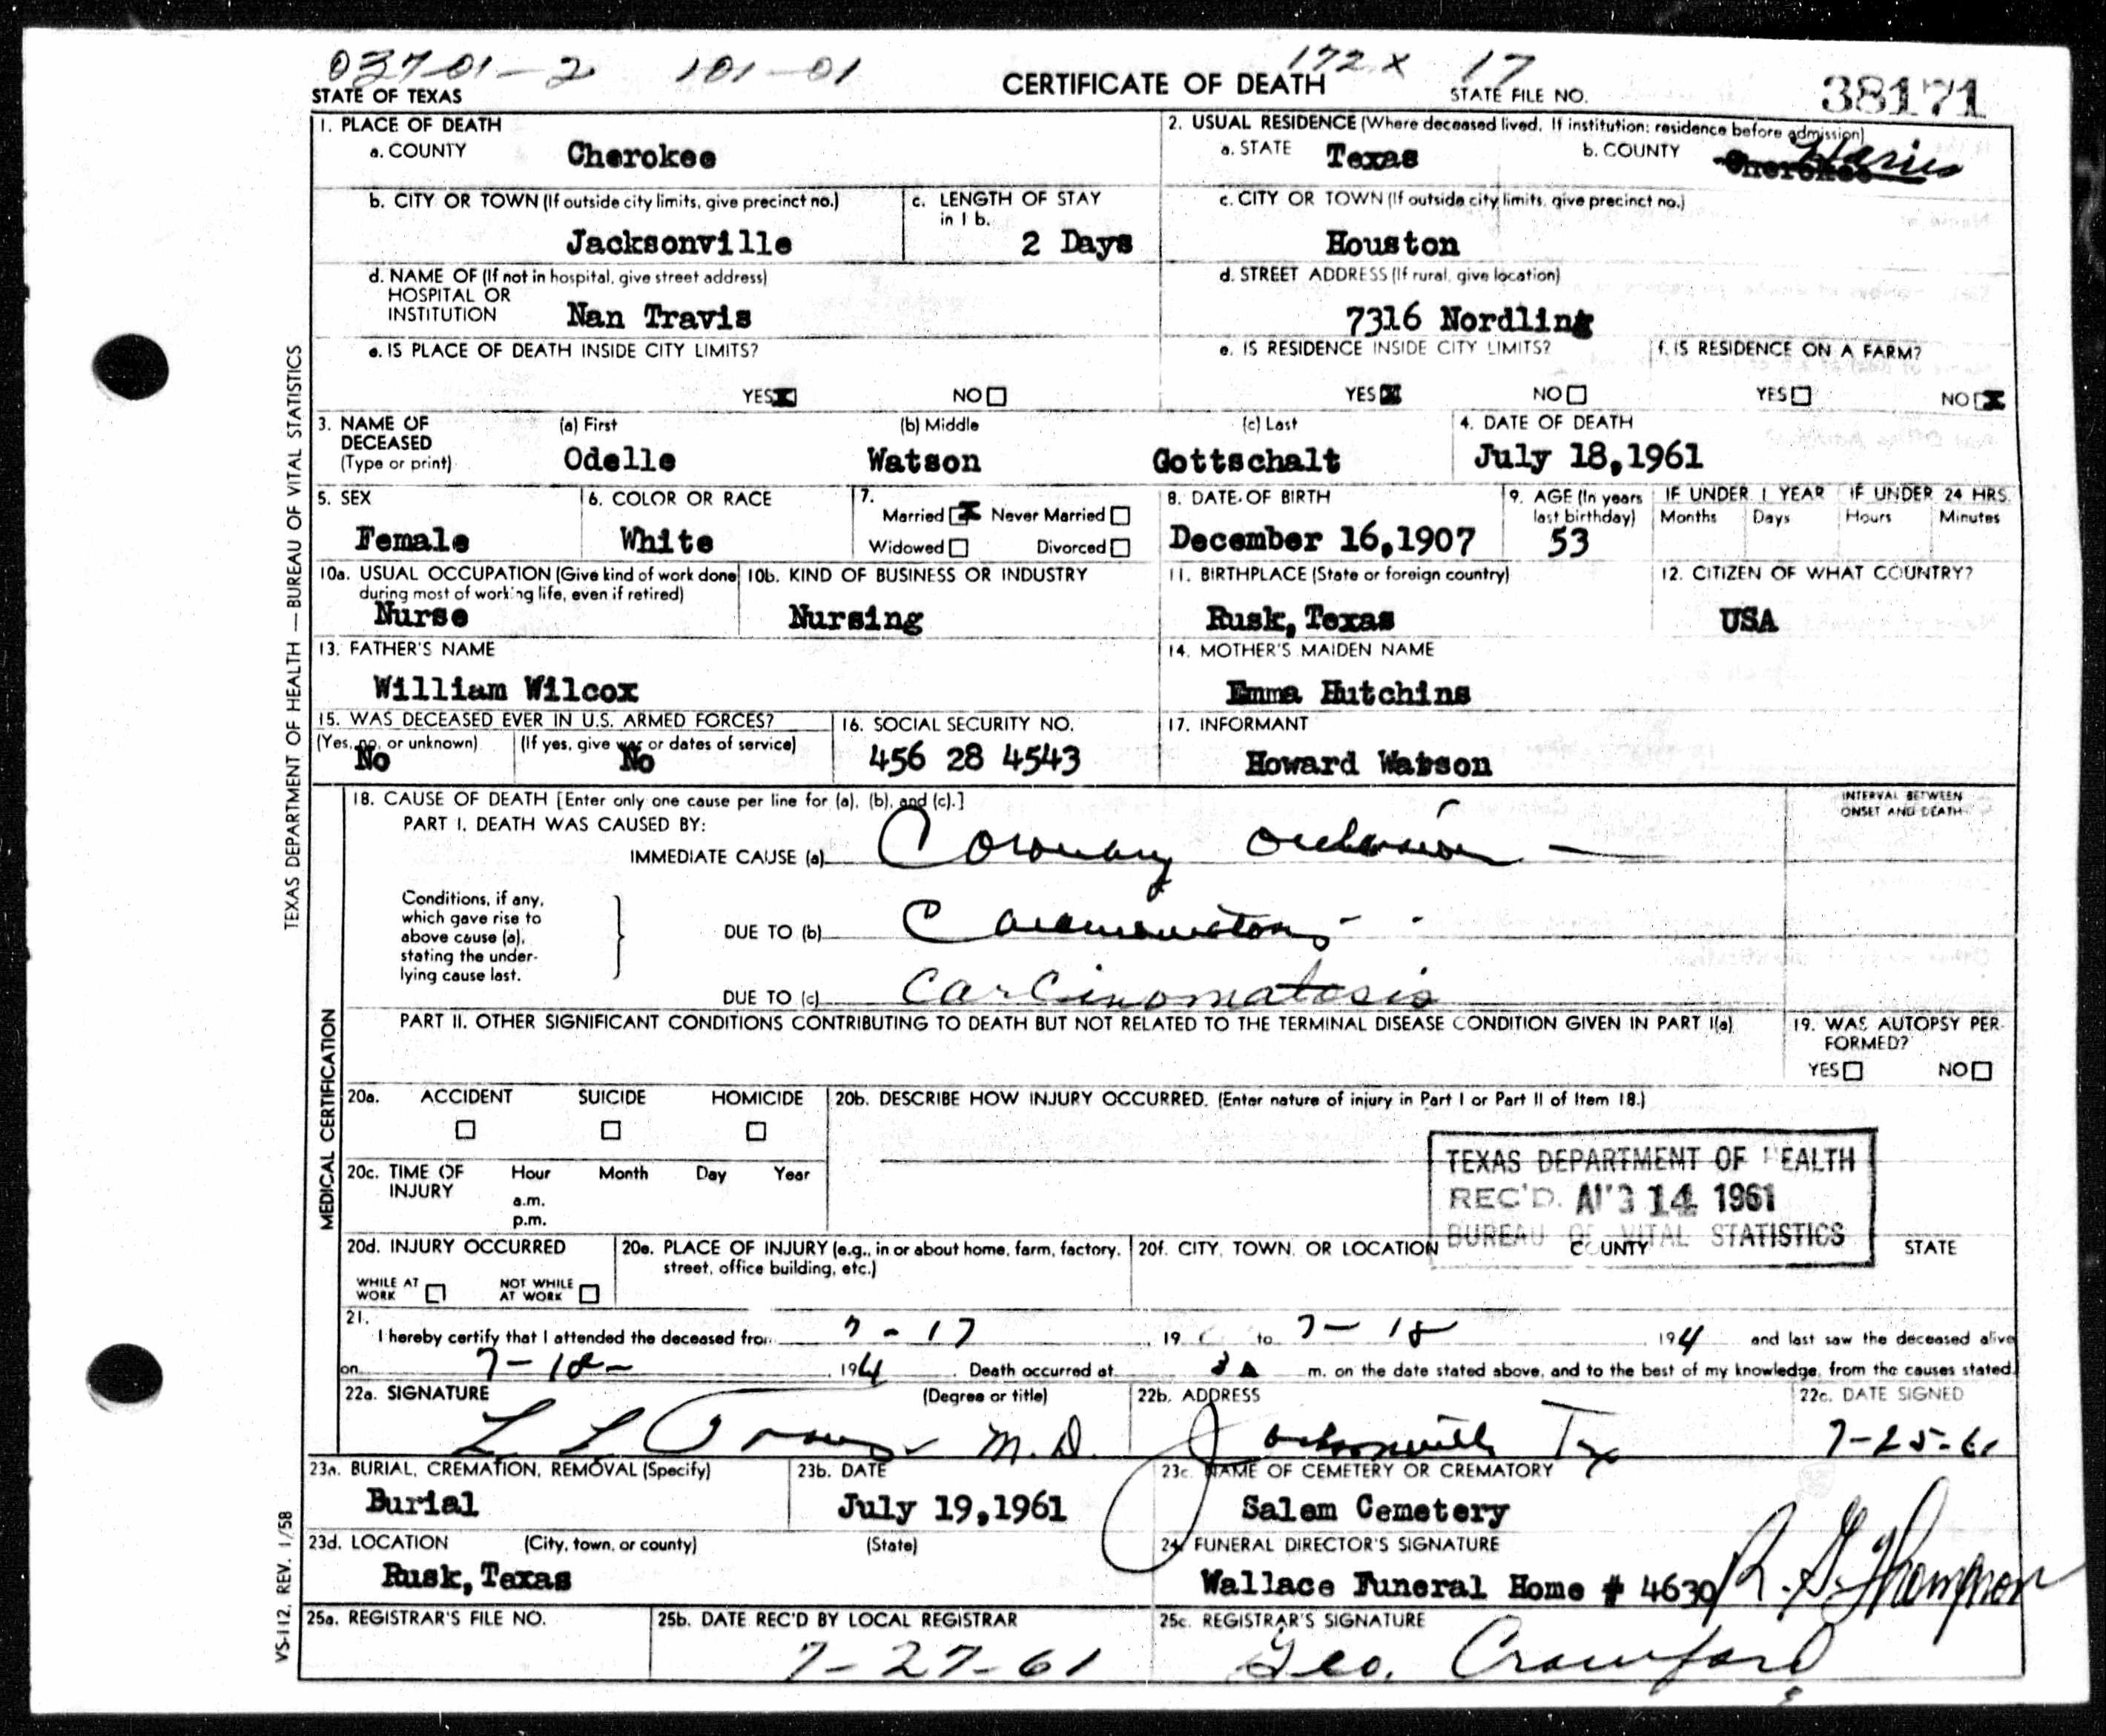 03701-2 101-01 172X 17
STATE OF TEXAS CERTIFICATE OF DEATH STATE FILE NO. 38171
1. PLACE OF DEATH
a. COUNTY Cherokee
2. USUAL RESIDENCE (Where deceased lived. If institution: residence before admission)
a. STATE Texas b. COUNTY Cherokee Harris
b. CITY OR TOWN (If outside city limits, give precinct no.)
Jacksonville
c. LENGTH OF STAY
in 1 b.
2 Days
c. CITY OR TOWN (If outside city limits, give precinct no.)
Houston
d. NAME OF (If not in hospital, give street address)
HOSPITAL OR
INSTITUTION Nan Travis
d. STREET ADDRESS (If rural, give location)
7316 Nordling
e. IS PLACE OF DEATH INSIDE CITY LIMITS?
YES NO
e. IS RESIDENCE INSIDE CITY LIMITS?
YES NO
f. IS RESIDENCE ON A FARM?
YES NO
3. NAME OF
DECEASED
(Type or print)
(a) First (b) Middle (c) Last
Odelle Watson Gottschalt
4. DATE OF DEATH
July 18,1961
5. SEX
Female
6. COLOR OR RACE
White
7.
Married Never Married
Widowed Divorced
8. DATE OF BIRTH
December 16,1907
9. AGE (In years
last birthday)
53
IF UNDER 1 YEAR
Months Days
IF UNDER 24 HRS.
Hours Minutes
10a. USUAL OCCUPATION (Give kind of work done
during most of working life, even if retired)
Nurse
10b. KIND OF BUSINESS OR INDUSTRY
Nursing
11. BIRTHPLACE (State or foreign country)
Rusk, Texas
12. CITIZEN OF WHAT COUNTRY?
USA
13. FATHER'S NAME
William Wilcox
14. MOTHER'S MAIDEN NAME
Emma Hutchins
15. WAS DECEASED EVER IN U.S. ARMED FORCES?
(Yes, no, or unknown) (If yes, give war or dates of service)
No No
16. SOCIAL SECURITY NO.
456 28 4543
17. INFORMANT
Howard Watson
18. CAUSE OF DEATH [Enter only one cause per line for (a), (b), and (c).]
INTERVAL BETWEEN
ONSET AND DEATH
PART I. DEATH WAS CAUSED BY:
IMMEDIATE CAUSE (a) Coronary occlusion
Conditions, if any,
which gave rise to
above cause (a),
stating the under-
lying cause last.
DUE TO (b)
DUE TO (c) Carcinomatosis
PART II. OTHER SIGNIFICANT CONDITIONS CONTRIBUTING TO DEATH BUT NOT RELATED TO THE TERMINAL DISEASE CONDITION GIVEN IN PART I(a)
19. WAS AUTOPSY PER-
FORMED?
YES NO
20a. ACCIDENT SUICIDE HOMICIDE
20b. DESCRIBE HOW INJURY OCCURRED. (Enter nature of injury in Part I or Part II of Item 18.)
TEXAS DEPARTMENT OF HEALTH
REC'D. AUG 14 1961
BUREAU OF VITAL STATISTICS
20c. TIME OF
INJURY
Hour Month Day Year
a.m.
p.m.
20d. INJURY OCCURRED
WHILE AT
WORK
NOT WHILE
AT WORK
20e. PLACE OF INJURY (e.g., in or about home, farm, factory,
street, office building, etc.)
20f. CITY, TOWN, OR LOCATION COUNTY STATE
21.
I hereby certify that I attended the deceased from 7-17, 19 to 7-18 1961 and last saw the deceased alive
on 7-18-, 1961. Death occurred at 3 A m. on the date stated above, and to the best of my knowledge, from the causes stated.
22a. SIGNATURE (Degree or title)
L L Travis M.D.
22b. ADDRESS
Jacksonville Tex
22c. DATE SIGNED
7-25-61
23a. BURIAL, CREMATION, REMOVAL (Specify)
Burial
23b. DATE
July 19,1961
23c. NAME OF CEMETERY OR CREMATORY
Salem Cemetery
23d. LOCATION (City, town, or county) (State)
Rusk, Texas
24. FUNERAL DIRECTOR'S SIGNATURE
Wallace Funeral Home # 4630 R. G. Thompson
25a. REGISTRAR'S FILE NO.
25b. DATE REC'D BY LOCAL REGISTRAR
7-27-61
25c. REGISTRAR'S SIGNATURE
Geo. Crawford
TEXAS DEPARTMENT OF HEALTH — BUREAU OF VITAL STATISTICS
MEDICAL CERTIFICATION
VS-112, REV. 1/58